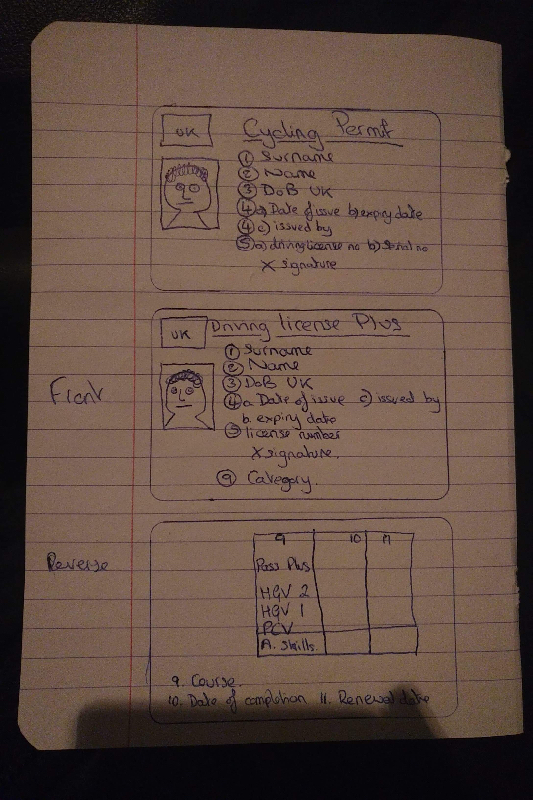 UK
Cycling Permit
① Surname
② Name
③ DoB UK
④ a) Date of issue b) expiry date
④ c) issued by
⑤ a) driving license no b) serial no
X signature
UK
Driving license Plus
① Surname
② Name
③ DoB UK
④ a. Date of issue c) issued by
b. expiry date
⑤ license number
X signature.
⑨ Category.
Front
Reverse
9 10 11
Pass Plus
HGV 2
HGV 1
PCV
A. Skills.
9. Course.
10. Date of completion 11. Renewal date